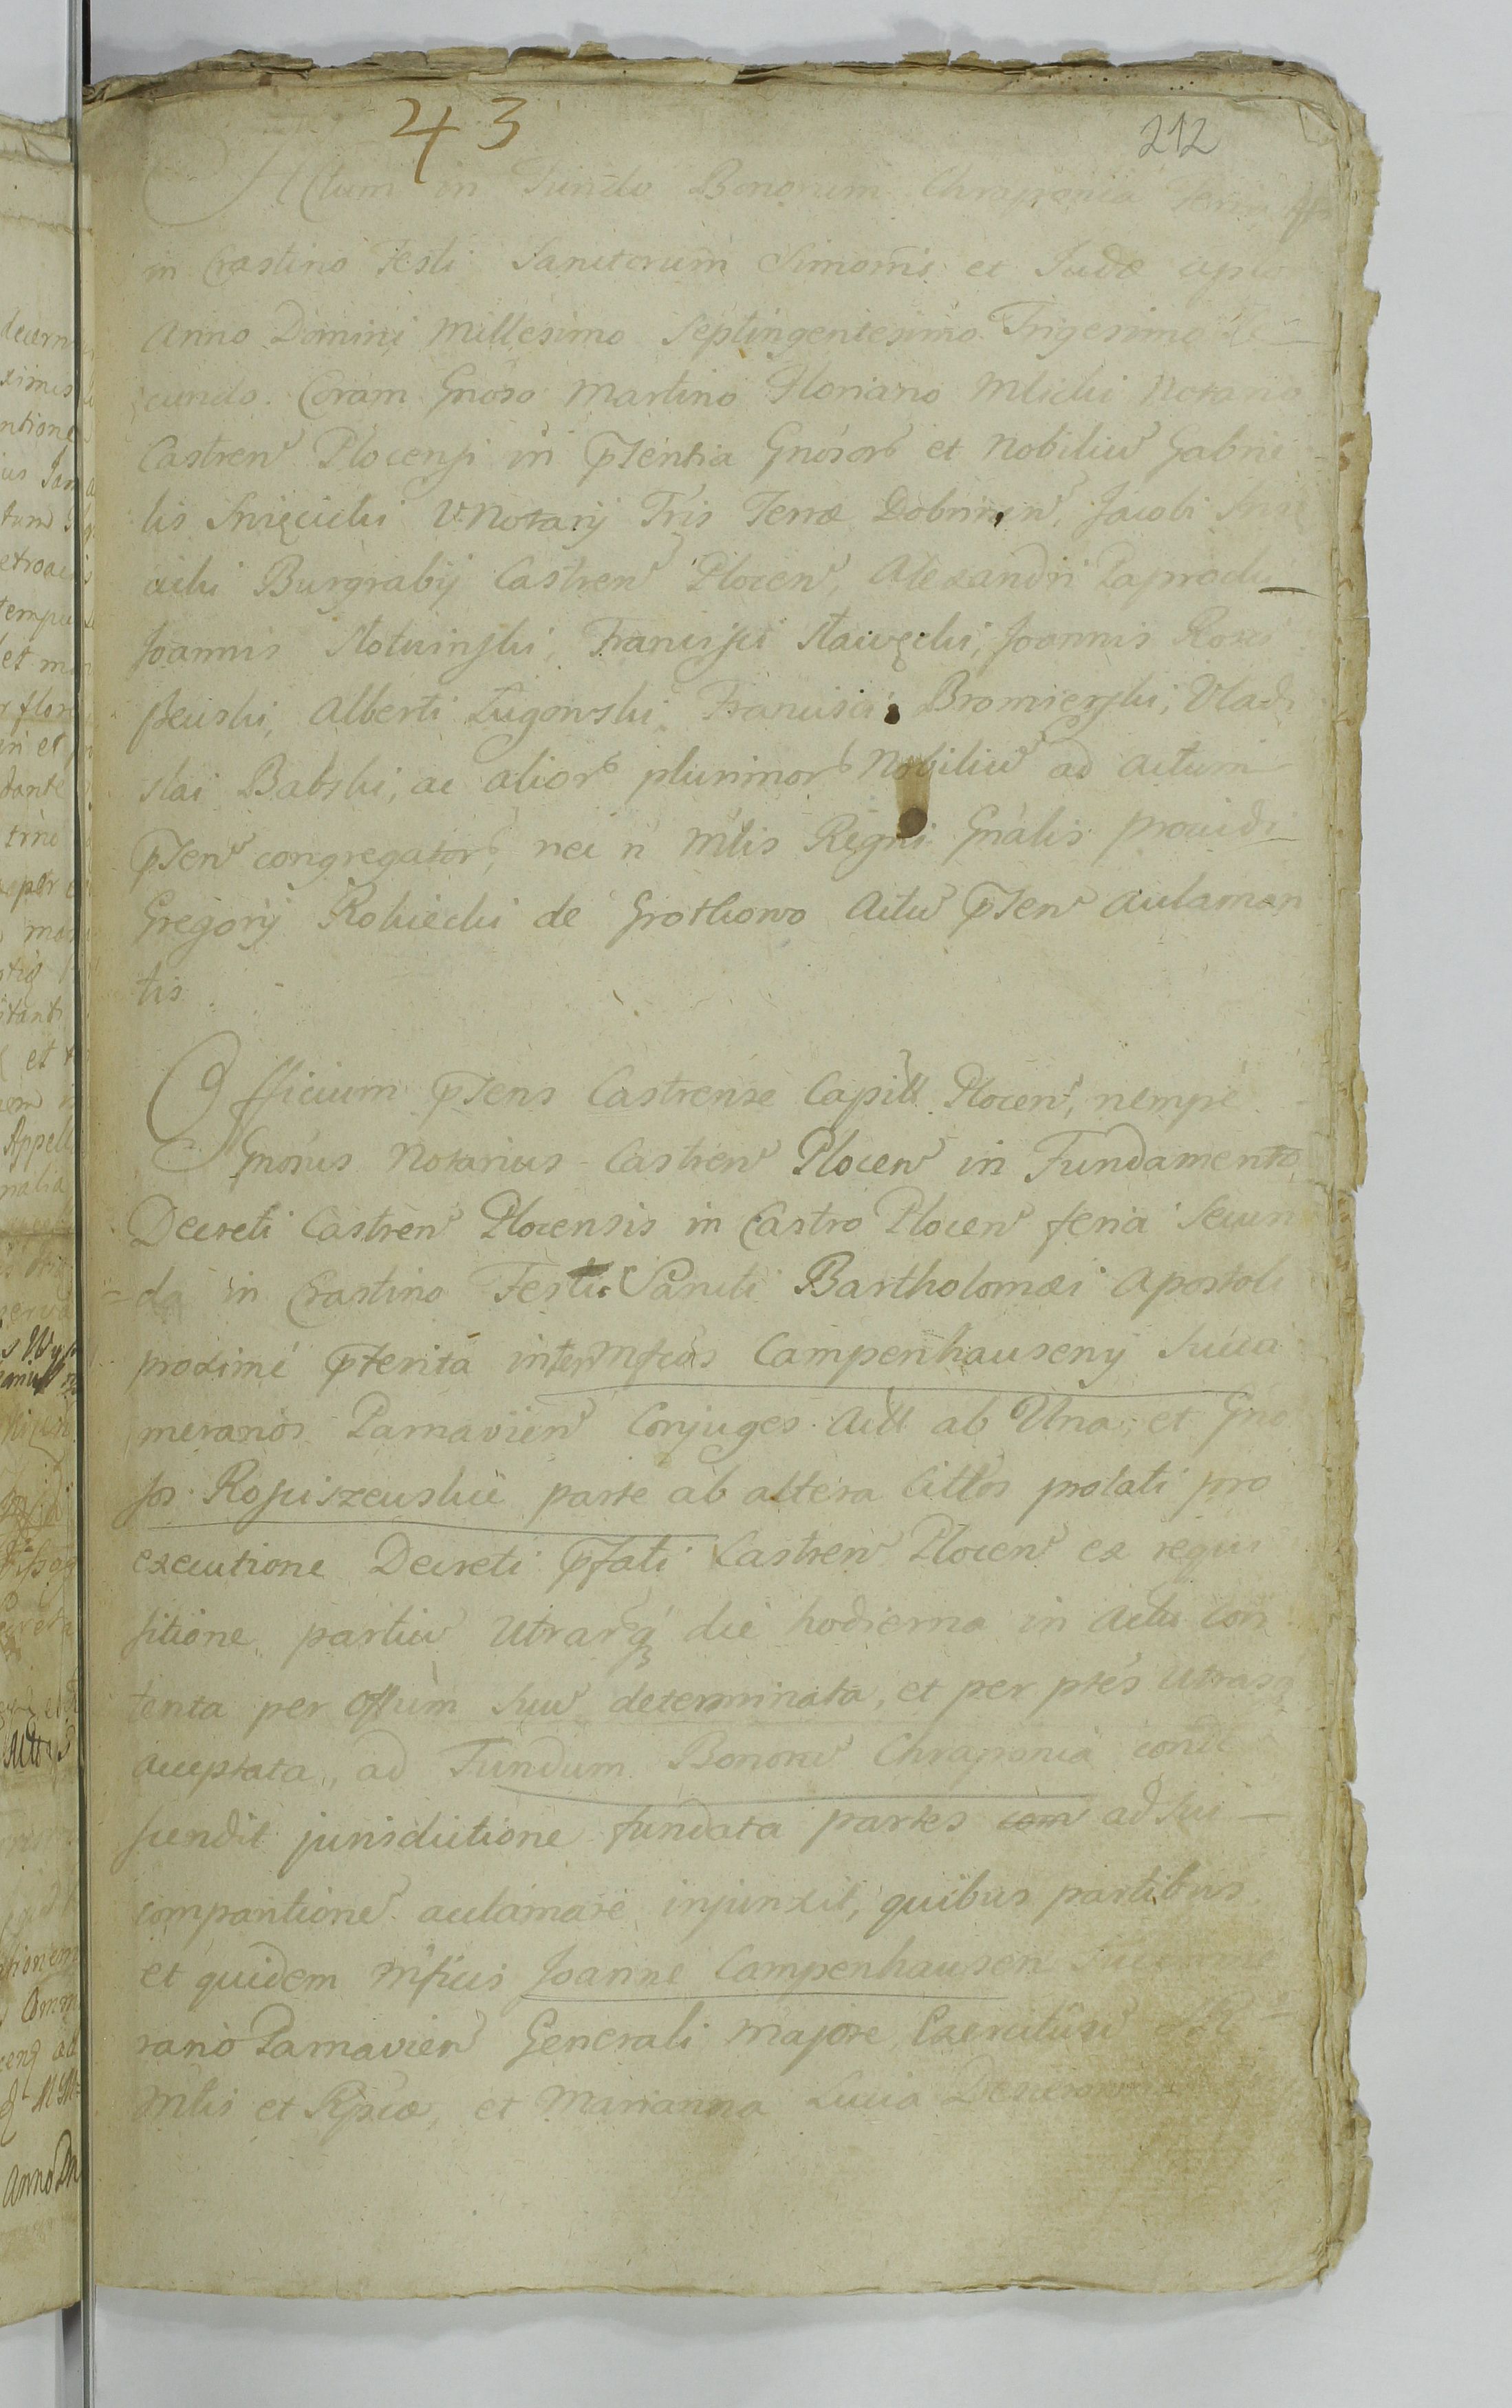 43
212
Actum in Fundo Bonorum Chraponia Feria
in Crastino Festi Sanctorum Simonis et Judæ
Anno Domini Millesimo Septingentesimo Trigesimo Se
cundo. Coram Gnoso Martino Floriano Mlicki Notario
Castren Plocensi in pntia Gnosor et Nobiliu Gabrie
lis Święcicki V. Notarij Tris Terræ Dobrinen, Jacobi
cicki Burgrabij Castren Plocen, Alexandri Paprocki
Joannis Slotwinski, Francisci Stawęcki, Joannis Rosci
szewski, Alberti Lugowski, Francisci Bromierski, Vladi
slai Babski, ac alior plurimor Nobiliu ad actum
pnten congregator, nec n Mtlis Regni Gnalis providi
Gregorij Rokicki de Grotkowo Actu pnten aclaman
tis.
Officium pntens Castrense Capitt Plocen, nempe
Gnosus Notarius Castren Plocen in Fundamento
Decreti Castren Plocensis in Castro Plocen feria Secun
da in Crastino Festi Sancti Bartholomæi Apostoli
proxime pterita inter Mfcos Campenhauseny Succa
meranos Parnavien Conjuges Act ab Una, et Gno
sos Rosciszewskie parte ab altera Cittos prolati pro
executione Decreti pfati Castren Plocen ex requi
sitione partiu utrarq die hodierna in Actu con
tenta per Offium suu determinata, et per ptes utrasq
acceptata, ad Fundum Bonoru Chraponia conde
scendit jurisdictione fundata partes com ad sui
comparitione aclamare injunxit, quibus partibus
et quidem Mficis Joanne Campenhausen Succame
rano Parnavien Generali Majore Exercituu
Mtis et Rpcæ, et Marianna Lucia